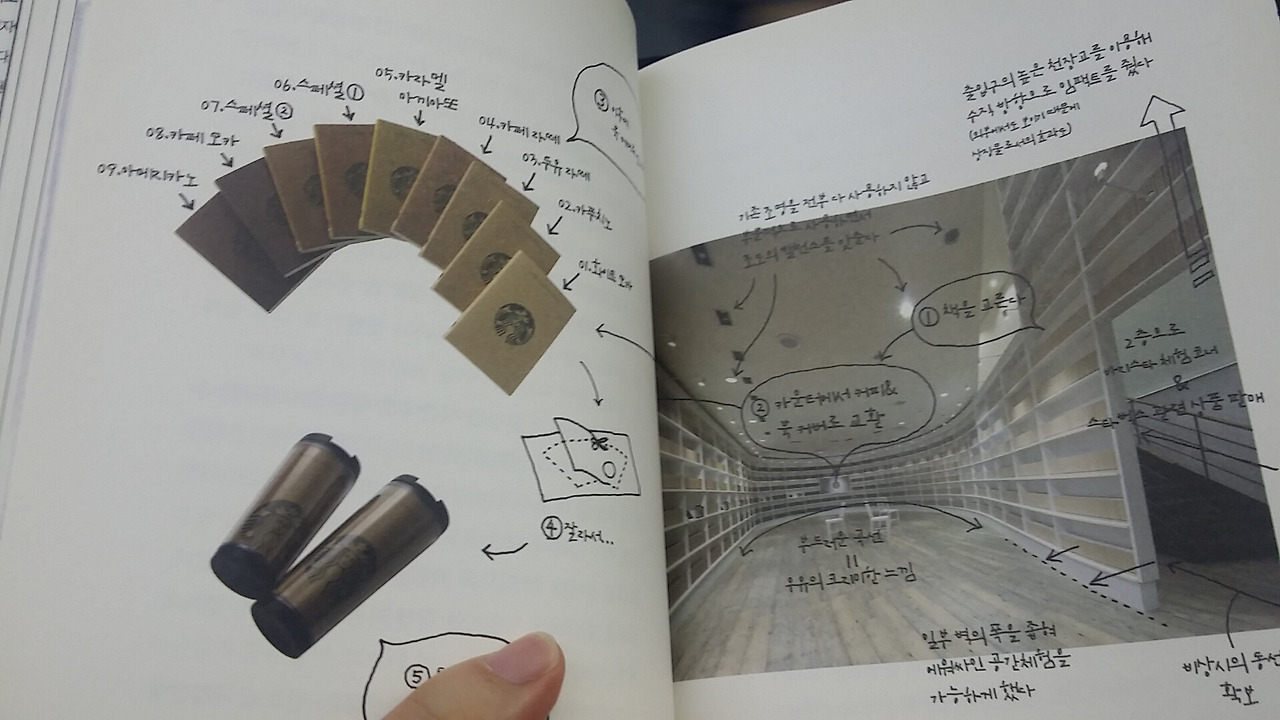 05.카라멜
마끼아또
06.스페셜①
07.스페셜②
08.카페 모카
09.아메리카노
04.카페 라떼
03.두유 라떼
02.카푸치노
01.화이트 모카
③
④ 잘라서..
⑤
출입구의 높은 천장고를 이용해
수직 방향으로 임팩트를 줬다
(외부에서도 보이기 때문에
상징물로서의 효과도)
기존 조명을 전부 다 사용하지 않고
부분적으로 사용하면서
조도의 밸런스를 맞춘다
① 책을 고른다
② 카운터에서 커피&
북 커버로 교환
2층으로
바리스타 체험 코너
&
스타벅스 관련 상품 판매
부드러운 곡선
=
우유의 크리미한 느낌
일부 벽의 폭을 좁혀
에워싸인 공간체험을
가능하게 했다
비상시의 동선
확보